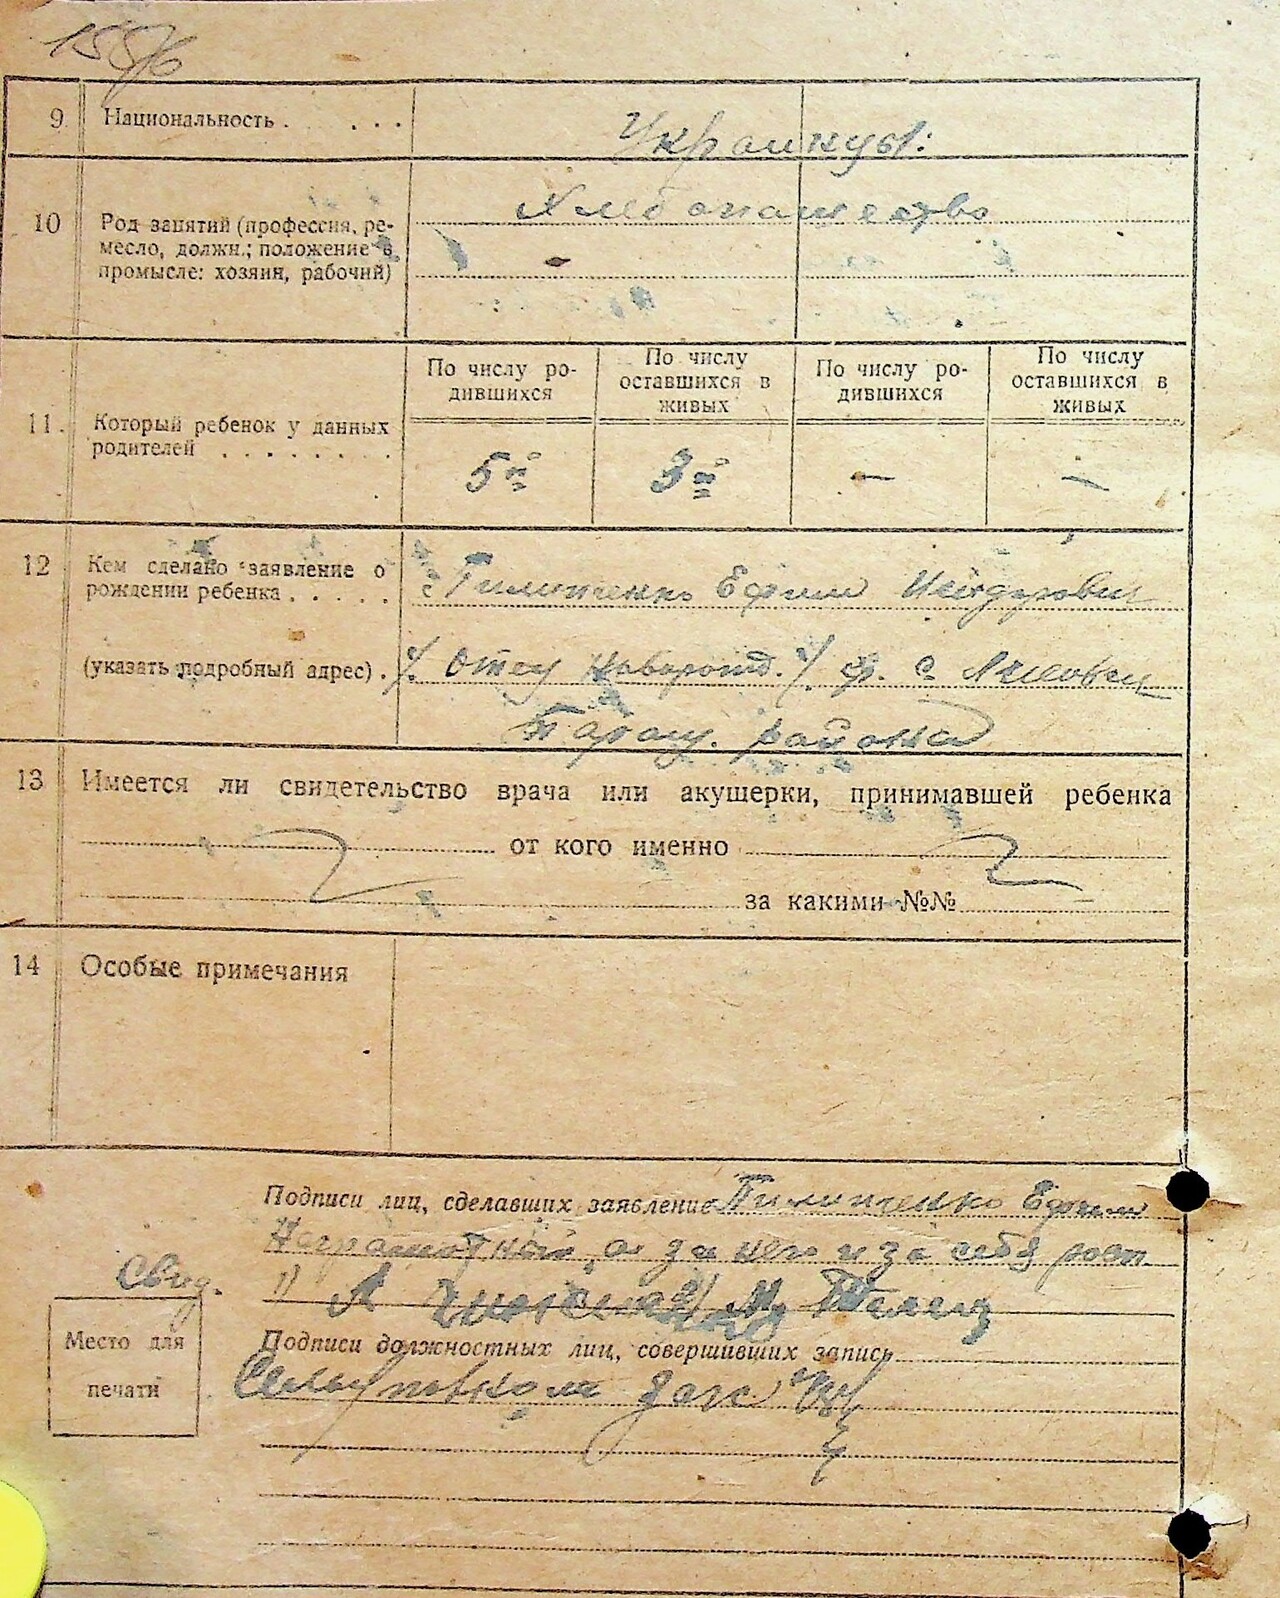 155/6
9 Национальность . . . .
Украинцы:
10 Род занятий (профессия, ре-
месло, должн.; положение в
промысле: хозяин, рабочий)
Хлебопашество
По числу ро-
дившихся
По числу
оставшихся в
живых
По числу ро-
дившихся
По числу
оставшихся в
живых
11. Который ребенок у данных
родителей . . . . . . . .
5й 3й — —
12 Кем сделано заявление о
рождении ребенка . . . . .
Пилипенко Ефим
(указать подробный адрес) .
/. Отец новорожд. ./ с.
района
13 Имеется ли свидетельство врача или акушерки, принимавшей ребенка
от кого именно
за какими №№
14 Особые примечания
Подписи лиц, сделавших заявление Пилипенко Ефим
Неграмотный, а за него и за себя росп.
Свид. 1) А
Место для
печати
Подписи должностных лиц, совершивших запись